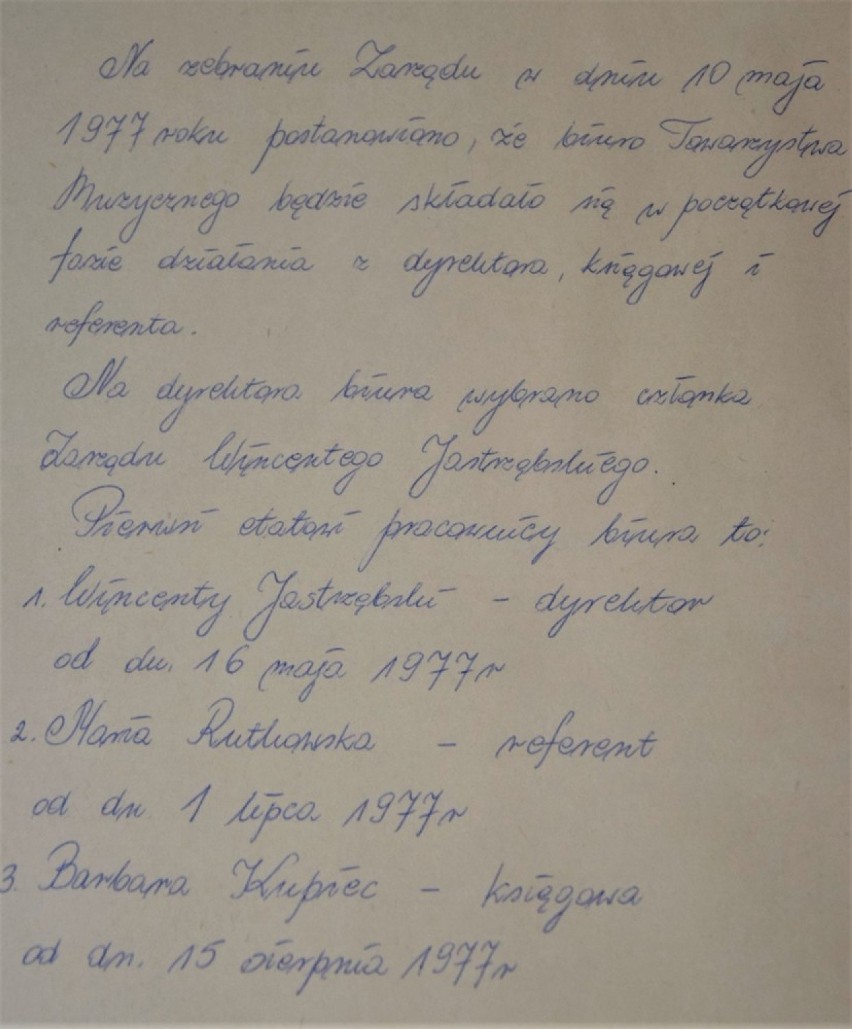 Na zebraniu Zarządu w dniu 10 maja
1977 roku postanowiono, że biuro Towarzystwa
Muzycznego będzie składało się w początkowej
fazie działania z dyrektora, księgowej i
referenta.
Na dyrektora biura wybrano członka
Zarządu Wincentego Jastrzębskiego.
Pierwsi etatowi pracownicy biura to:
1. Wincenty Jastrzębski - dyrektor
od dn. 16 maja 1977 r
2. Maria Rutkowska - referent
od dn 1 lipca 1977 r
3. Barbara Kupiec - księgowa
od dn. 15 sierpnia 1977 r